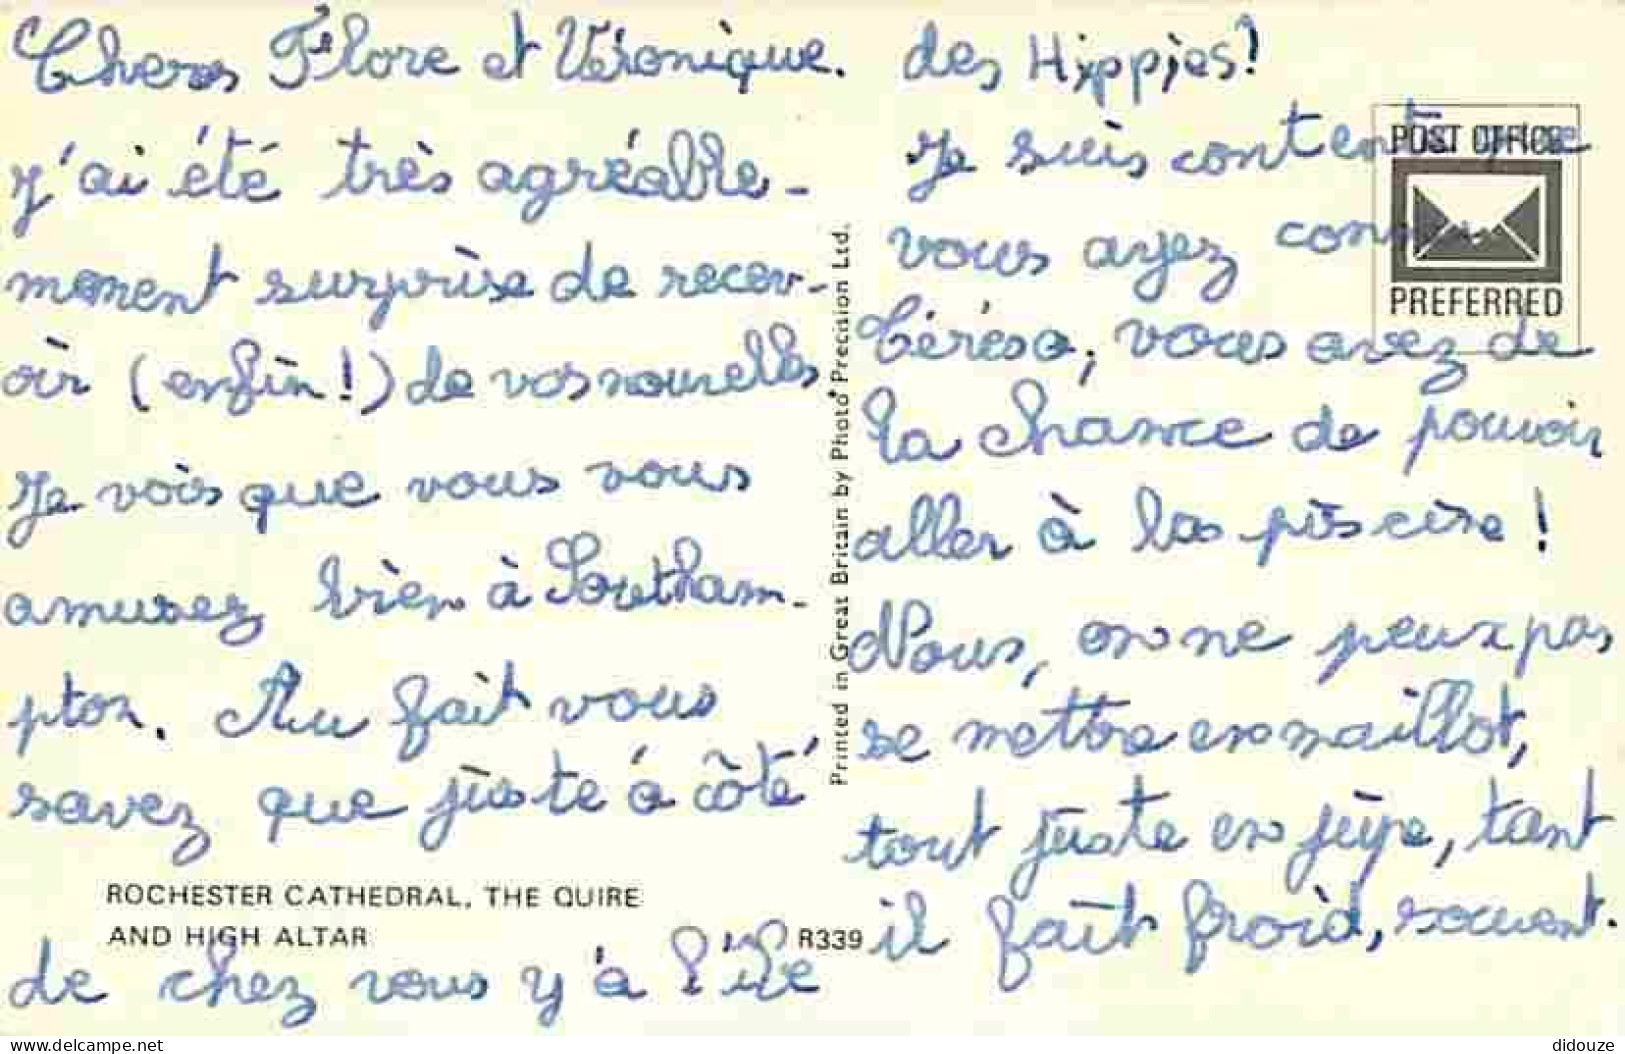 Chères Flore et Véronique.
j'ai été très agréable-
moment surprise de recev-
oir (enfin!) de vos nouvelles
Je vois que vous vous
amusez bien à Southam-
pton. Au fait vous
savez que juste à côté
ROCHESTER CATHEDRAL, THE QUIRE
AND HIGH ALTAR
R339
de chez vous y'a l'île
Printed in Great Britain by Photo Precision Ltd.
des Hippies!
POST OFFICE
PREFERRED
Je suis contente que
vous ayez connu
Térésa, vous avez de
la chance de pouvoir
aller à la piscine!
Nous, on ne peux pas
se mettre en maillot,
tout juste en jupe, tant
il fait froid, souvent.
www.delcampe.net
didouze